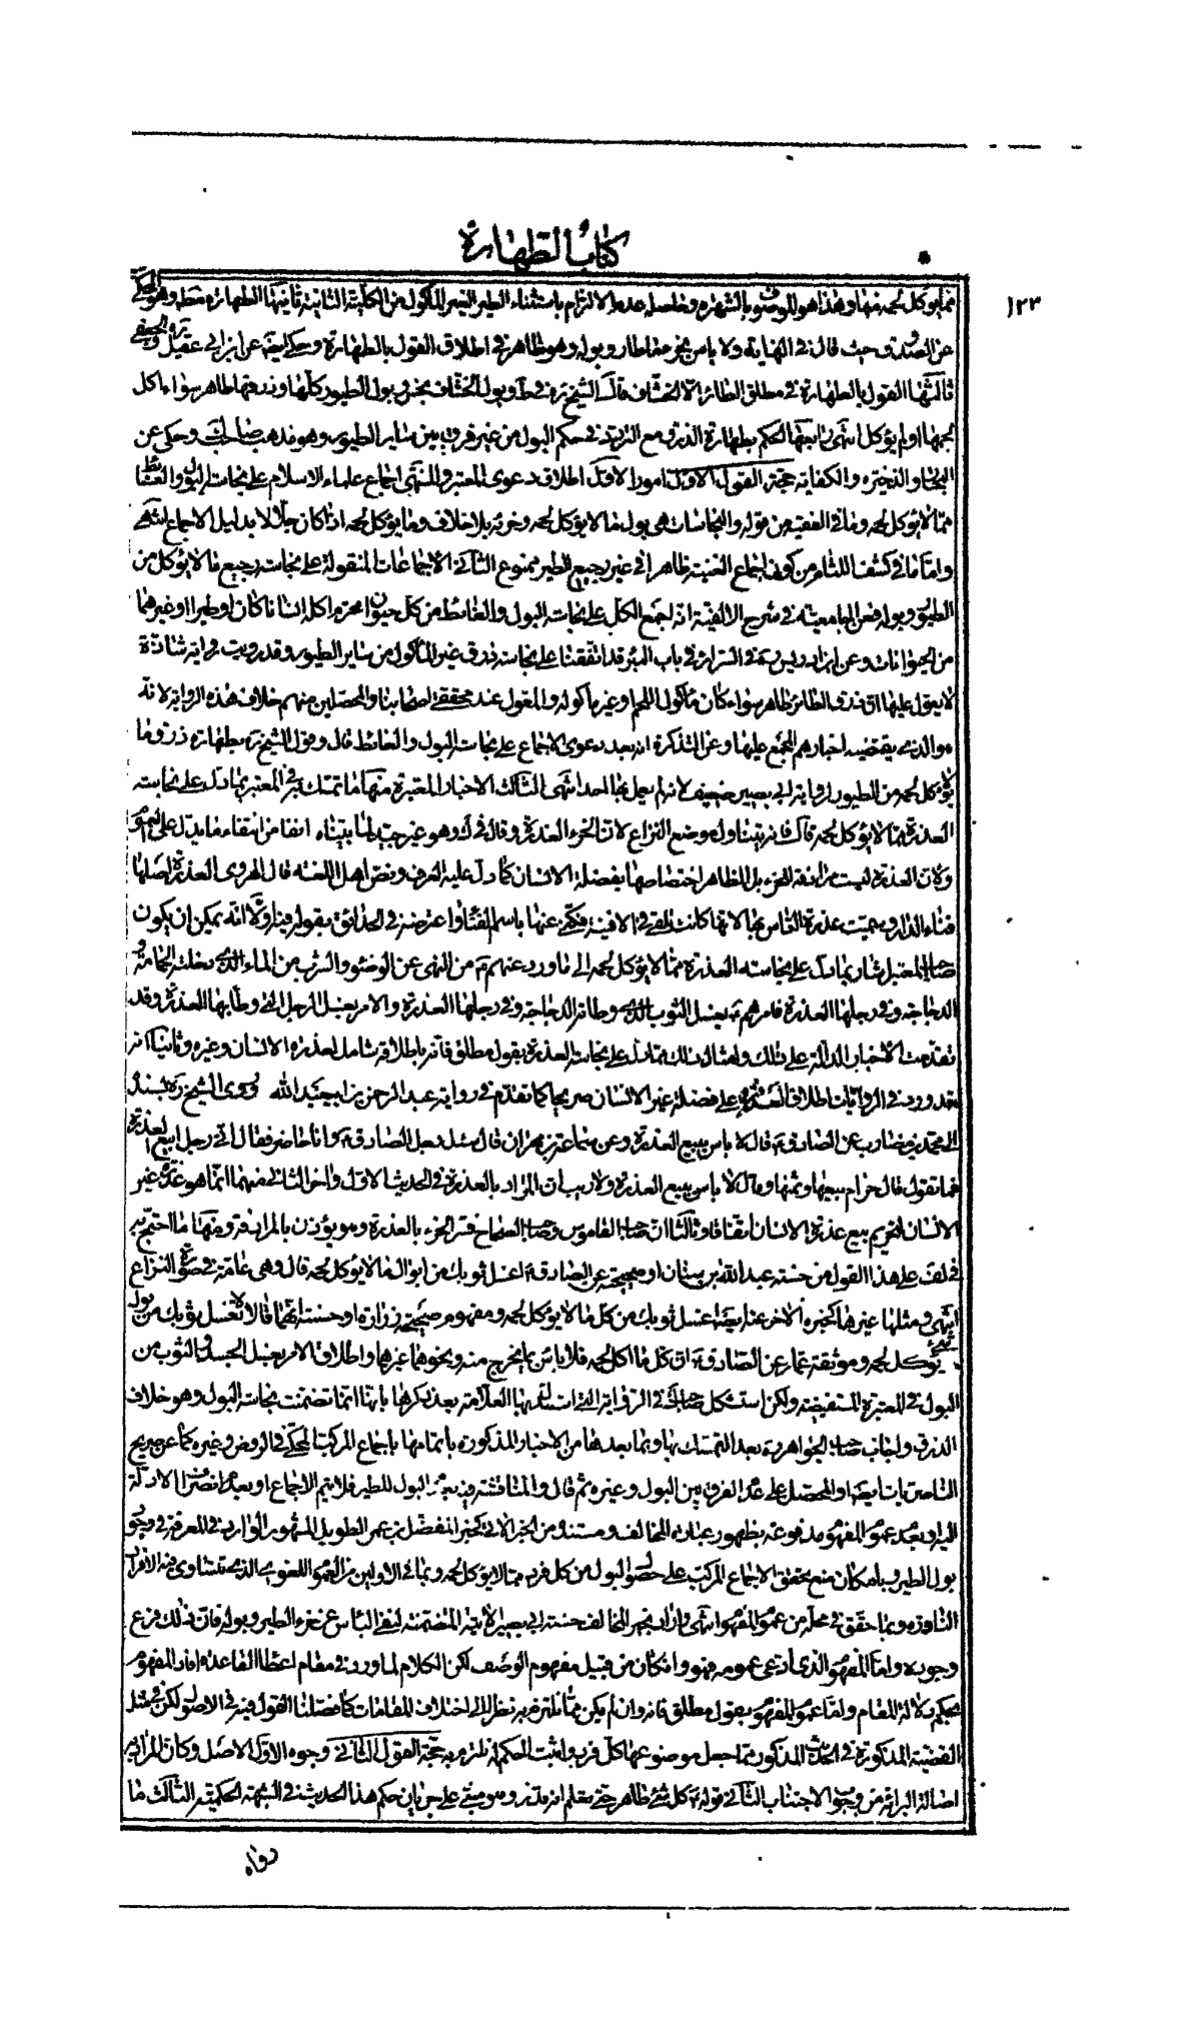 كتاب الطهارة
١٢٣
مما يؤكل لحمه منها وهذا هو الموصوف بالشهرة وحاصله عدم الالتزام باستثناء الطير الغير المأكول من الكلية الثانية ثانيها الطهارة مطلقا وهو المحكي
عن الصدوق حيث قال في الفقيه ولا بأس بخرء ما طار وبوله وهو ظاهر في اطلاق القول بالطهارة وحكي ايضا عن ابن ابي عقيل والجعفي
ثالثها القول بالطهارة في مطلق الطائر الا الخشاف قال الشيخ ره في ط وبول الخشاف نجس وبول الطيور كلها وذرقها طاهر سواء اكل
لحمها او لم يؤكل انتهى رابعها الحكم بطهارة الذرق مع التردد في حكم البول من غير فرق بين سائر الطيور وهو مذهب صاحب ك وحكى عن
البحار والذخيرة والكفاية حجة القول الاول امور الاول اطلاق دعوى المعتبر والمنتهى اجماع علماء الاسلام على نجاسة البول والغائط
مما لا يؤكل لحمه وما في الغنية من قوله والنجاسات هي بول ما لا يؤكل لحمه وخرئه بلا خلاف وما يؤكل لحمه اذا كان جلالا بدليل الاجماع انتهى
واما ما في كشف اللثام من كون اجماع الغنية ظاهرا في غير رجيع الطير ممنوع الثاني الاجماعات المنقولة على نجاسة رجيع ما لا يؤكل من
الطيور وبوله فعن الجامعية في شرح الالفية انه اجمع الكل على نجاسة البول والغائط من كل حيوان محرم اكله انسانا كان او طيرا او غيرهما
من الحيوانات وعن ابن ادريس ره في السرائر في باب البئر قد اتفقنا على نجاسة ذرق غير المأكول من سائر الطيور وقد رويت رواية شاذة
لا يعول عليها ان ذرق الطائر طاهر سواء كان مأكول اللحم او غير مأكوله والمعول عند محققي اصحابنا والمحصلين منهم خلاف هذه الرواية لانه
هو الذي يقتضيه اخبارهم المجمع عليها وعن التذكرة انه بعد دعوى الاجماع على نجاسة البول والغائط قال وقول الشيخ ره بطهارة ذرق ما
لا يؤكل لحمه من الطيور لرواية ابي بصير ضعيف لانه لم يعمل بها احد انتهى الثالث الاخبار المعتبرة منها ما تمسك به في المعتبر بما دل على نجاسة
العذرة مما لا يؤكل لحمه قال فانه يتناول موضع النزاع لان الخرء العذرة وقال في ك وهو غير جيد لما بيناه انفا من انتفاء ما يدل على العموم
ولان العذرة ليست مرادفة للخرء بل الظاهر اختصاصها بفضلة الانسان كما دل عليه العرف ونص اهل اللغة قال الهروي العذرة اصلها
فناء الدار وسميت عذرة الناس بها لانها كانت تلقى في الافنية فكني عنها باسم الفناء واعترضه في الحدائق بقوله فيه اولا انه يمكن ان يكون
صاحب المعتبر اشار بما دل على نجاسة العذرة مما لا يؤكل لحمه الى ما ورد عنهم ع من النهي عن الوضوء والشرب من الماء الذي دخلته الحمامة و
الدجاجة وفي رجلها العذرة فامرهم ع بغسل الثوب الذي وطائه الدجاجة وفي رجلها العذرة والامر بغسل الرجل التي وطأ بها العذرة وقد
تقدمت الاخبار الدالة على ذلك وامثال ذلك مما دل على نجاسة العذرة بقول مطلق فانه باطلاقه شامل لعذرة الانسان وغيره وثانيا انه
قد ورد في الروايات اطلاق العذرة على فضلة غير الانسان صريحا كما تقدم في رواية عبد الرحمن بن ابي عبد الله وروى الشيخ ره بسنده
الى محمد بن مضارب عن الصادق ع قال لا بأس ببيع العذرة وعن سماعة بن مهران قال سئل رجل الصادق ع وانا حاضر فقال اني رجل ابيع العذرة
فما تقول قال حرام بيعها وثمنها وقال لا بأس ببيع العذرة ولا ريب ان المراد بالعذرة في الحديث الاول واخر الثاني منهما انما هو عذرة غير
الانسان لتحريم بيع عذرة الانسان اتفاقا وثالثا ان صاحب القاموس وصاحب الصحاح فسرا الخرء بالعذرة وهو يؤذن بالمرادفة ومنها ما احتج به
في لف على هذا القول من حسنة عبد الله بن سنان او صحيحته عن الصادق ع اغسل ثوبك من ابوال ما لا يؤكل لحمه قال وهي عامة في صورة النزاع
انتهى ومثلها غيرها كخبره الاخر عنه ايضا اغسل ثوبك من كل ما لا يؤكل لحمه ومفهوم صحيحة زرارة او حسنته انهما قالا لا تغسل ثوبك من بول
شيء يؤكل لحمه وموثقة عمار عن الصادق ع ان كل ما اكل لحمه فلا بأس بما يخرج منه ونحوهما غيرها واطلاق الامر بغسل الجسد والثوب من
البول في المعتبرة المستفيضة ولكن استشكل صاحب ك في الرواية التي استدل بها العلامة بعد ذكرها بانها انما تضمنت نجاسة البول وهو خلاف
الذرق واجاب صاحب الجواهر ره بعد التمسك بها وبما بعدها من الاخبار المذكورة باتمامها باجماع المركب المحكي في الروض وغيره كما عن صريح
الناصريات ايضا او المحصل على عدم الفرق بين البول وغيره ثم قال والمناقشة فيه بعدم البول للطير فلا يتم الاجماع او بعدم انصراف الادلة
اليه او بعدم عموم المفهوم مدفوعة بظهور عبارة المخالف ومستنده من الخبر الاتي كخبر المفضل بن عمر الطويل المشهور الوارد في المعرفة في وجود
بول الطير وبامكان منع تحقق الاجماع المركب على حصول البول من كل فرد مما لا يؤكل لحمه وبما في الاولين من العموم اللغوي الذي تتساوى فيه الافراد
النادرة وبما حقق في محله من عموم المفهوم انتهى واراد بخبر المخالف حسنة ابي بصير الاتية المتضمنة لنفي البأس عن خرء الطير وبوله فان ذلك فرع
وجوده واما المفهوم الذي ادعى عمومه فهو وان كان من قبيل مفهوم الوصف لكن الكلام لما ورد في مقام اعطاء القاعدة افاد المفهوم
بحكم دلالة المقام واما عموم المفهوم بقول مطلق فانه وان لم يكن مما نلتزم به نظرا الى اختلاف المقامات كما فصلنا القول فيه في الاصول لكن في مثل
القضية المذكورة في الحديث المذكور مما جعل موضوعها كل فرد واثبت الحكم له نلتزم به حجة القول الثاني وجوه الاول الاصل وكان المراد به
اصالة البرائة من وجوب الاجتناب الثاني قوله ع كل شيء طاهر حتى تعلم انه قذر وهو مبني على جريان حكم هذا الحديث في الشبهة الحكمية الثالث ما
رواه